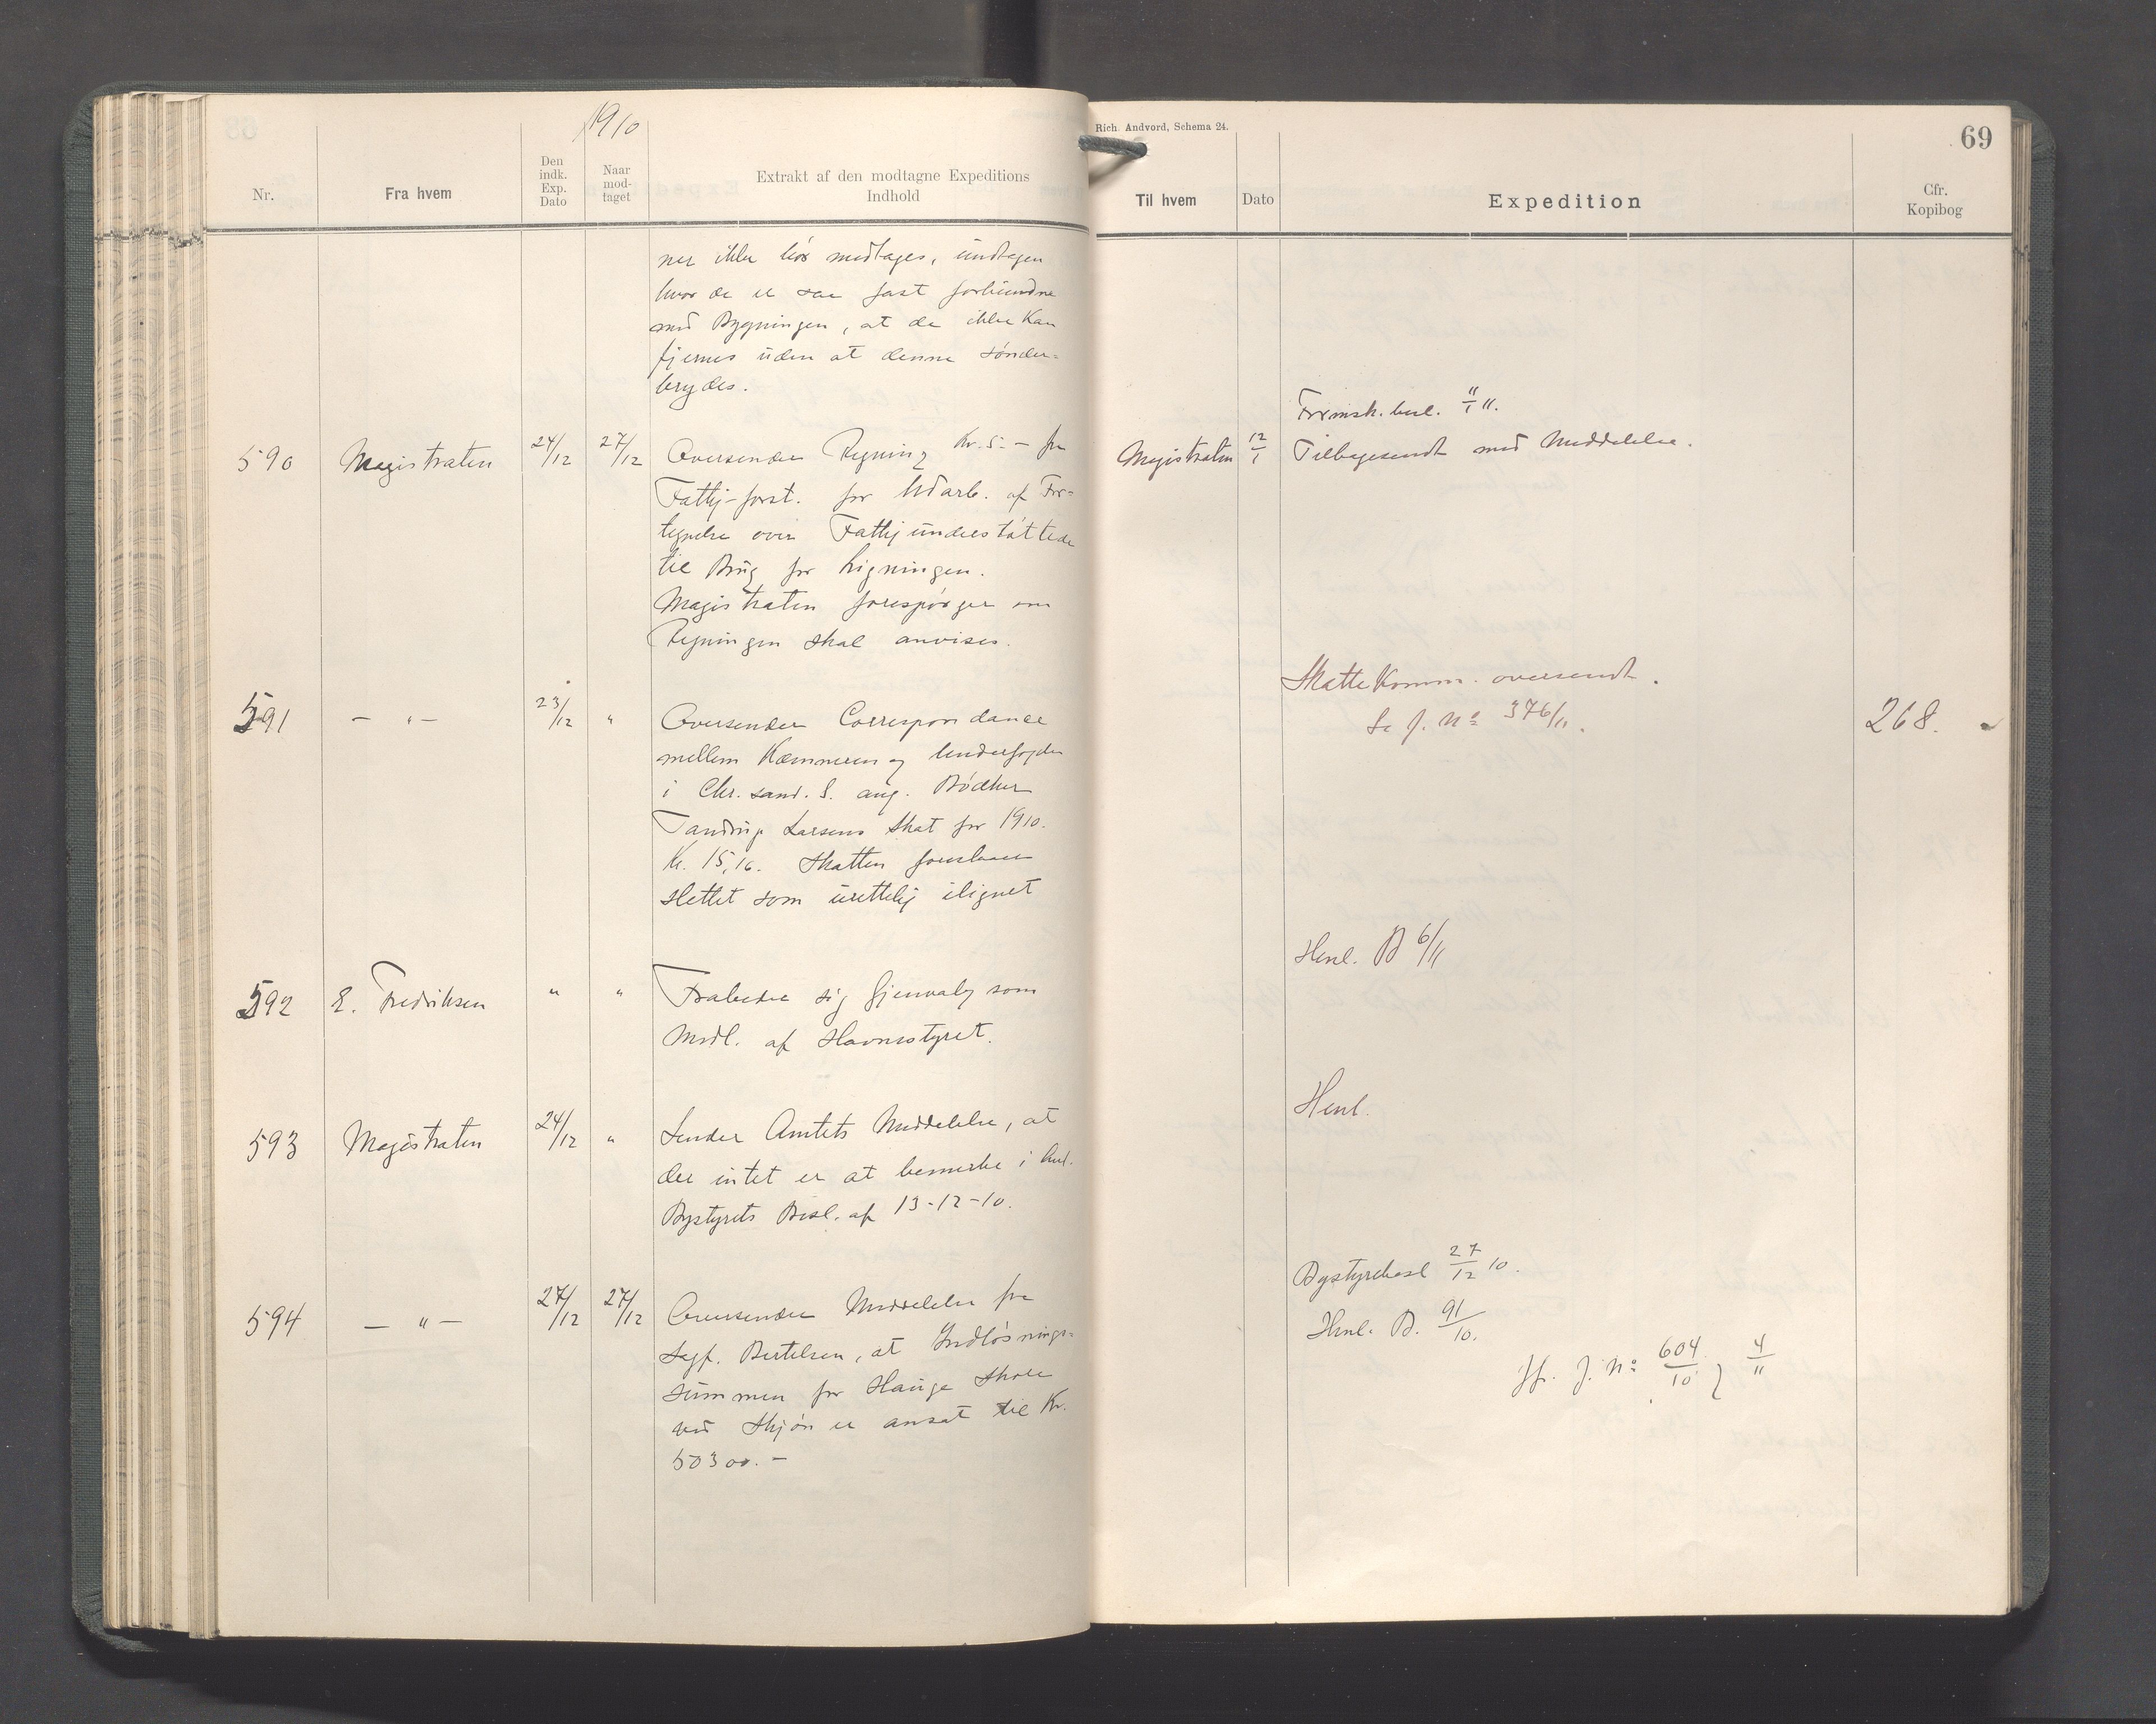 1910
Nr.
Fra hvem
Den indk. Exp. Dato
Naar mod-taget
Extrakt af den modtagne Expeditions
Indhold
ner ikke bør medtages, undtagen
hvor de er saa fast forbundne
med Bygningen, at de ikke kan
fjernes uden at denne sønder=
brydes.
590 Magistraten 24/12 27/12 Oversender Regning Kr. 5.- fra
Fattij-forst. for Udarb. af For=
tegnelse over Fattigunderstøttede
til Brug for Ligningen.
Magistraten forespørger om
Regningen skal anvises.
591 - " - 23/12 " Oversender Correspondance
mellem Kæmneren og
i Chr. sand. S. ang. Bødker
Tandrup Larsens Skat for 1910.
Kr. 15,16. Skatten foreslaaes
slettet som urettelig ilignet
592 E. Fredriksen " " Frabeder sig Gjenvalg som
Medl. af Havnestyret.
593 Magistraten 24/12 " Sender Amtets Meddelelse, at
der intet er at bemerke i Anl.
Bystyrets Besl. af 13-12-10.
594 - " - 27/12 27/12 Oversender Meddelelse fra
Sagf. Bertelsen, at Indløsnings=
summen for Hauge Skole
ved Skjøn er ansat til Kr.
50300.-
Rich. Andvord, Schema 24.
69
Til hvem
Dato
Expedition
Cfr.
Kopibog
Formsk. besl. 11/1 11.
Magistraten 12/1 Tilbagesendt med Meddelelse.
Skattekomm. oversendt.
Se J. No 376/11. 268.
Henl. B 6/11
Henl.
Bystyrebesl 27/12 10.
Henl. B. 91/10.
Jfr. J. No 604/10 } 4/11